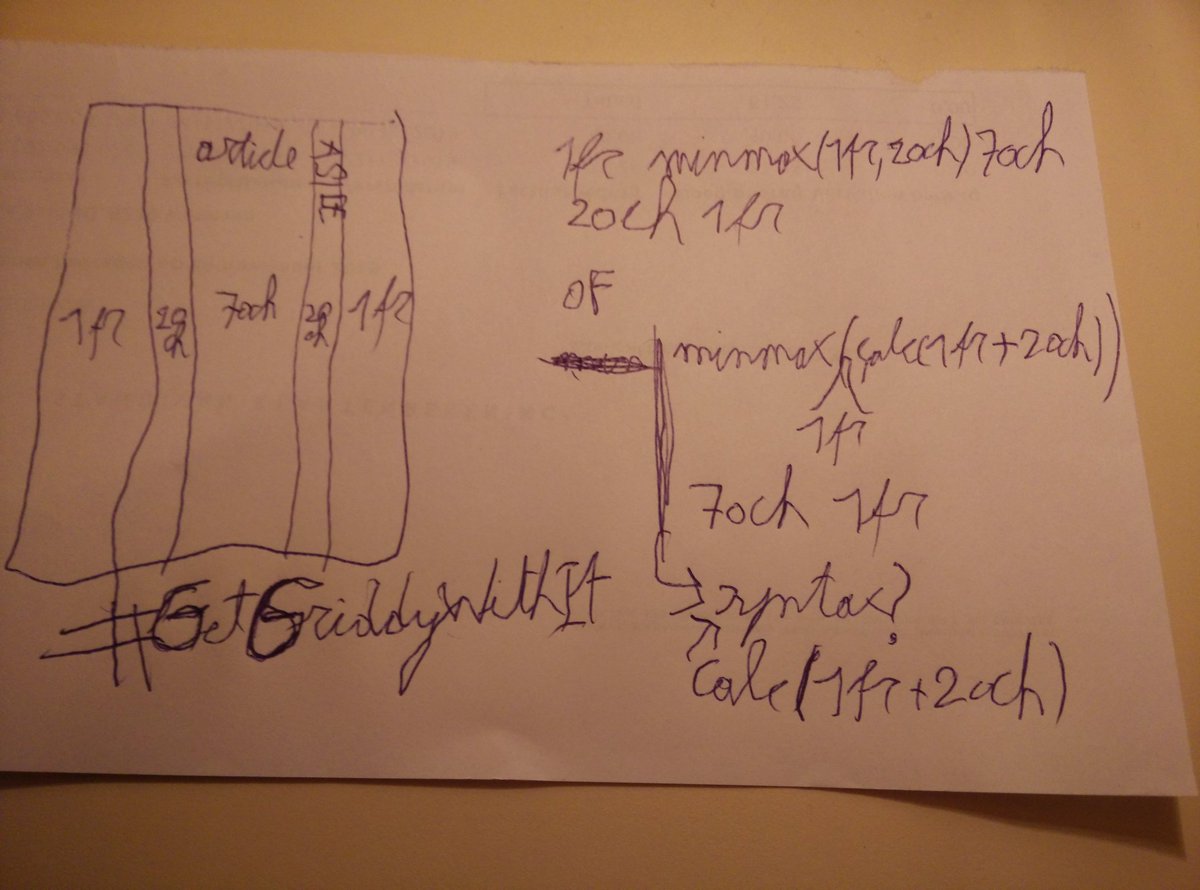 article ASIDE
1fr 20ch 70ch 20ch 1fr
#GetGriddyWithIt
1fr minmax(1fr, 20ch) 70ch
20ch 1fr
OF
minmax(calc(1fr+20ch))
1fr
70ch 1fr
syntax?
calc(1fr+20ch)